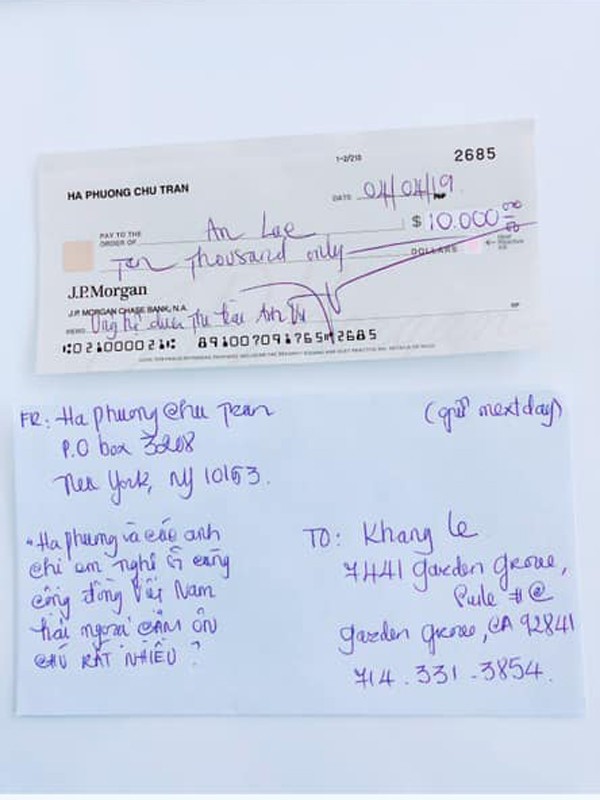 1-2/210
2685
HA PHUONG CHU TRAN
DATE 04/04/19
PAY TO THE
ORDER OF An Lac $ 10.000
Ten Thousand only DOLLARS
J.P.Morgan
J.P. MORGAN CHASE BANK, N.A.
MEMO Ủng hộ Anh Vũ
⑆021000021⑆ 891007091765⑈2685
FR: Ha Phuong Chu Tran
(gửi next day)
P.O box 3208
New York, NY 10163.
"Ha Phương và các anh
chị em nghệ sĩ cùng
cộng đồng Việt Nam
hải ngoại CẢM ƠN
CHÚ RẤT NHIỀU
TO: Khang Le
7441 garden grove,
#C
garden grove, CA 92841
714.331-3854.